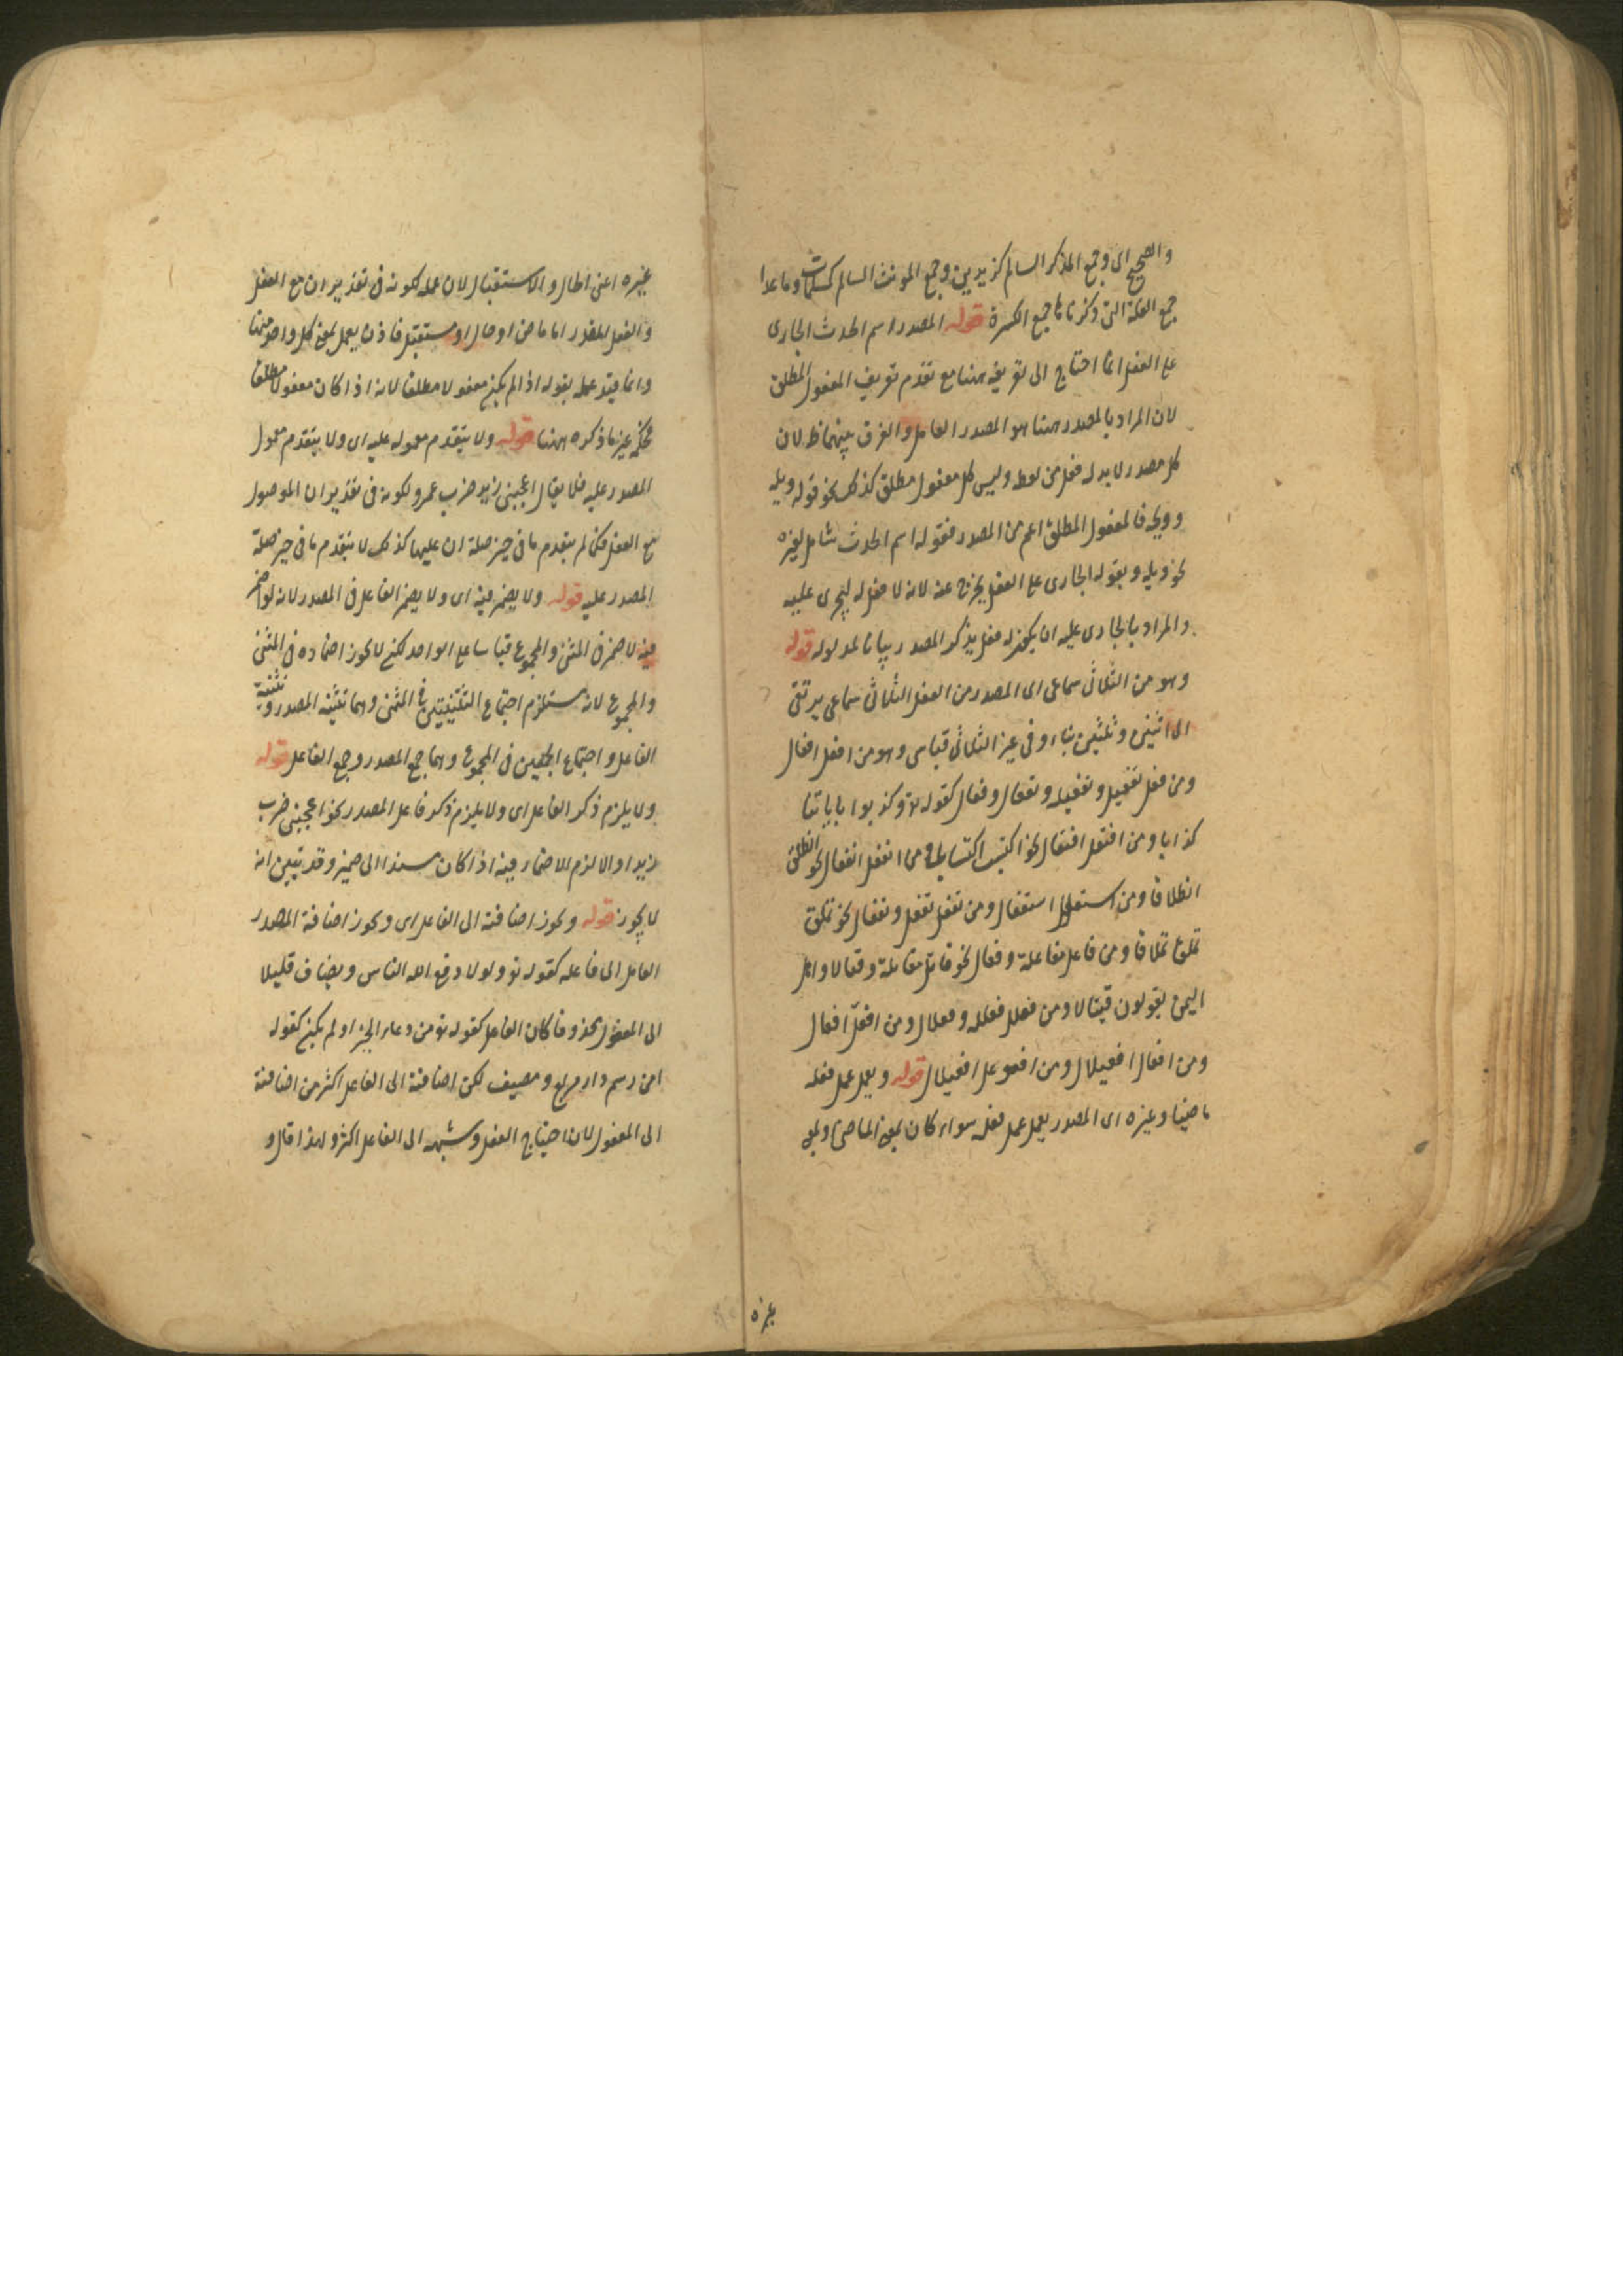 والصحيح اى وجمع المذكر السالم كزيدين وجمع المونث السالم كمسلمات وما عدا
جمع القلة التى ذكرناها جمع الكثرة قوله المصدر اسم الحدث الجارى
على الفعل انما احتاج الى تعريفه ههنا مع تقدم تعريف المفعول المطلق
لان المراد بالمصدر ههنا هو المصدر العامل والفرق بينهما ظ لان
كل مصدر لا بد له فعل من لفظه وليس كل مفعول مطلق كذلك نحو قوله ويله
وويحه فالمفعول المطلق اعم من المصدر فقوله اسم الحدث شامل لغيره
نحو ويله وبقوله الجارى على الفعل يخرج عنه لانه لا فعل له ليجرى عليه
والمراد بالجارى عليه ان يكون له فعل يذكر المصدر بيانا لمدلوله قوله
وهو من الثلاثى سماعى اى المصدر من الفعل الثلاثى سماعى يرتقى
الى اثنين وثلثين بناء وفى غير الثلاثى قياس وهو من افعل افعال
ومن فعل تفعيل وتفعيله وتفعال وفعال كقوله تع وكذبوا باياتنا
كذابا ومن افتعل افتعال نحو اكتسب اكتسابا ومن انفعل انفعال نحو انطلق
انطلاقا ومن استفعل استفعال ومن تفعل تفعل وتفعال نحو تملق
تملقا تملاقا ومن فاعل مفاعلة وفعال نحو قاتل مقاتلة وقتالا واهل
اليمن يقولون قيتالا ومن فعلل فعلله وفعلال ومن افعلّ افعال
ومن افعال افعيلال ومن افعوعل افعيلال قوله ويعمل عمل فعله
ماضيا وغيره اى المصدر يعمل عمل فعله سواء كان بمعنى الماضى او بمعنى
غيره
غيره اعنى الحال والاستقبال لان عمله لكونه فى تقدير ان مع الفعل
والفعل المقدر اما ماض او حال او مستقبل فاذن يعمل بمعنى كل واحد منها
وانما قيد عمله بقوله اذا لم يكن مفعولا مطلقا لانه اذا كان مفعولا مطلقا
فحكمه غير ما ذكره ههنا قوله ولا يتقدم معموله عليه اى ولا يتقدم معمول
المصدر عليه فلا يقال اعجبنى زيد ضرب عمرو لكونه فى تقدير ان الموصول
مع الفعل فكما لم يتقدم ما فى حيز صلة ان عليها كذلك لا يتقدم ما فى حيز صلة
المصدر عليه قوله ولا يضمر فيه اى ولا يضمر الفاعل فى المصدر لانه لو اضمر
فيه لاضمر فى المثنى والمجموع قياسا على الواحد لكنه لا يجوز اضماره فى المثنى
والمجموع لانه يستلزم اجتماع التثنيتين فى المثنى وهما تثنية المصدر وتثنية
الفاعل واجتماع الجمعين فى المجموع وهما جمع المصدر وجمع الفاعل قوله
ولا يلزم ذكر الفاعل اى ولا يلزم ذكر فاعل المصدر نحو اعجبنى ضرب
زيدا والا لزم الاضمار فيه اذا كان مسندا الى ضمير وقد تبين انه
لا يجوز قوله ويجوز اضافته الى الفاعل اى ويجوز اضافة المصدر
العامل الى فاعله كقوله تع ولولا دفع الله الناس ويضاف قليلا
الى المفعول محذوفا كان الفاعل كقوله تع من دعاء الخير او لم يكن كقوله
امن رسم دار مربع ومصيف لكن اضافته الى الفاعل اكثر من اضافته
الى المفعول لان احتياج الفعل وشبهه الى الفاعل اكثر ولهذا قال و